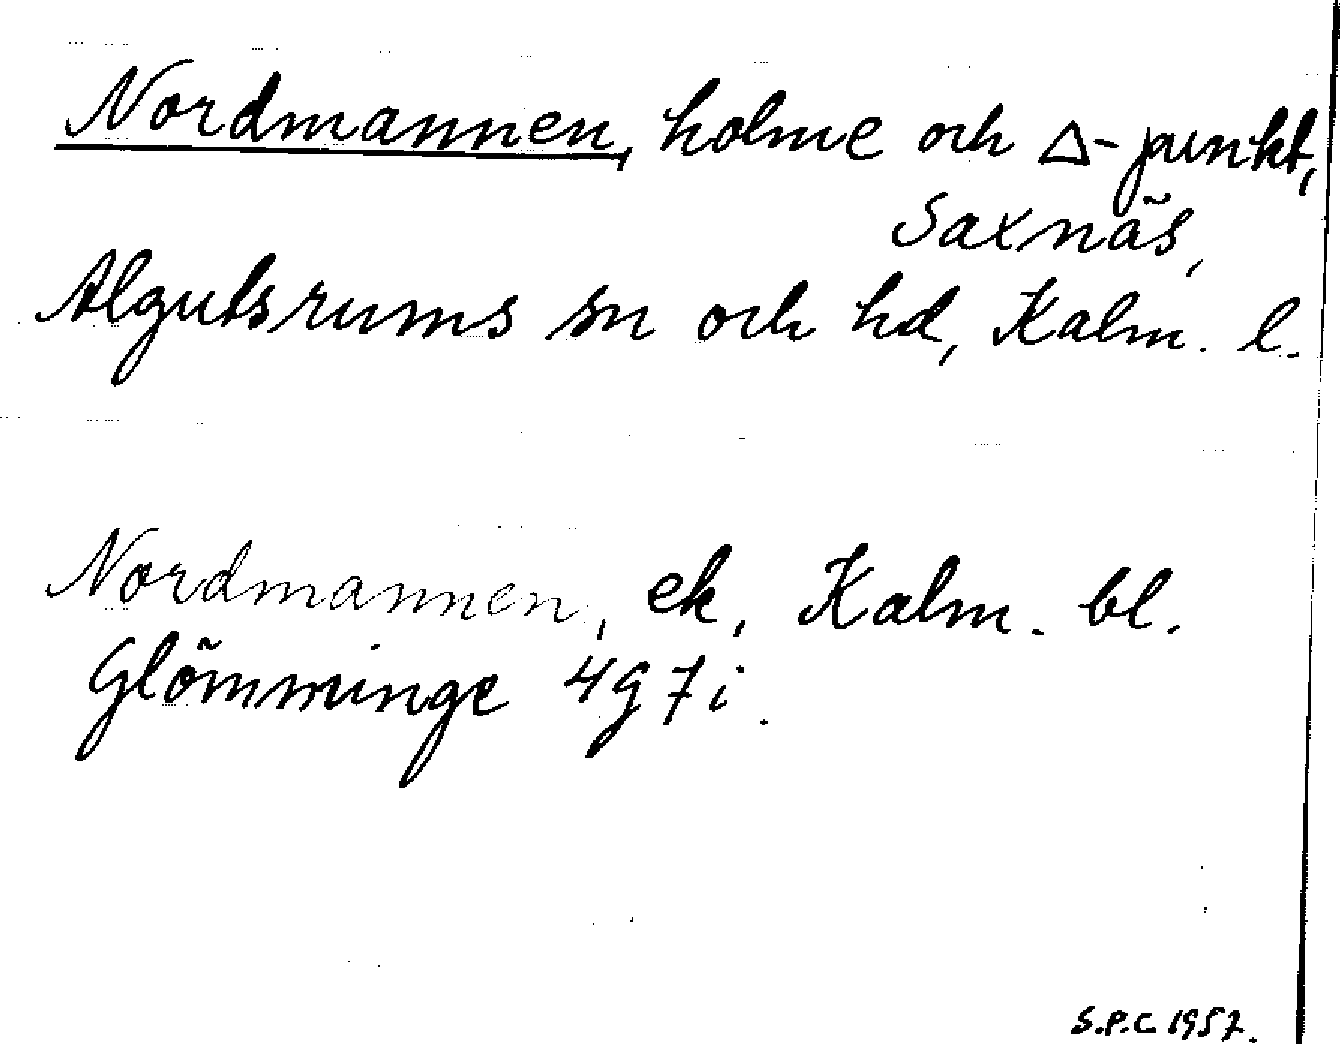 Nordmannen, holme och Δ-punkt,
Saxnäs,
Algutsrums sn och hd, Kalm. l.
Nordmannen, ek, Kalm. bl.
Glömminge 4g7i.
S.P.C. 1957.